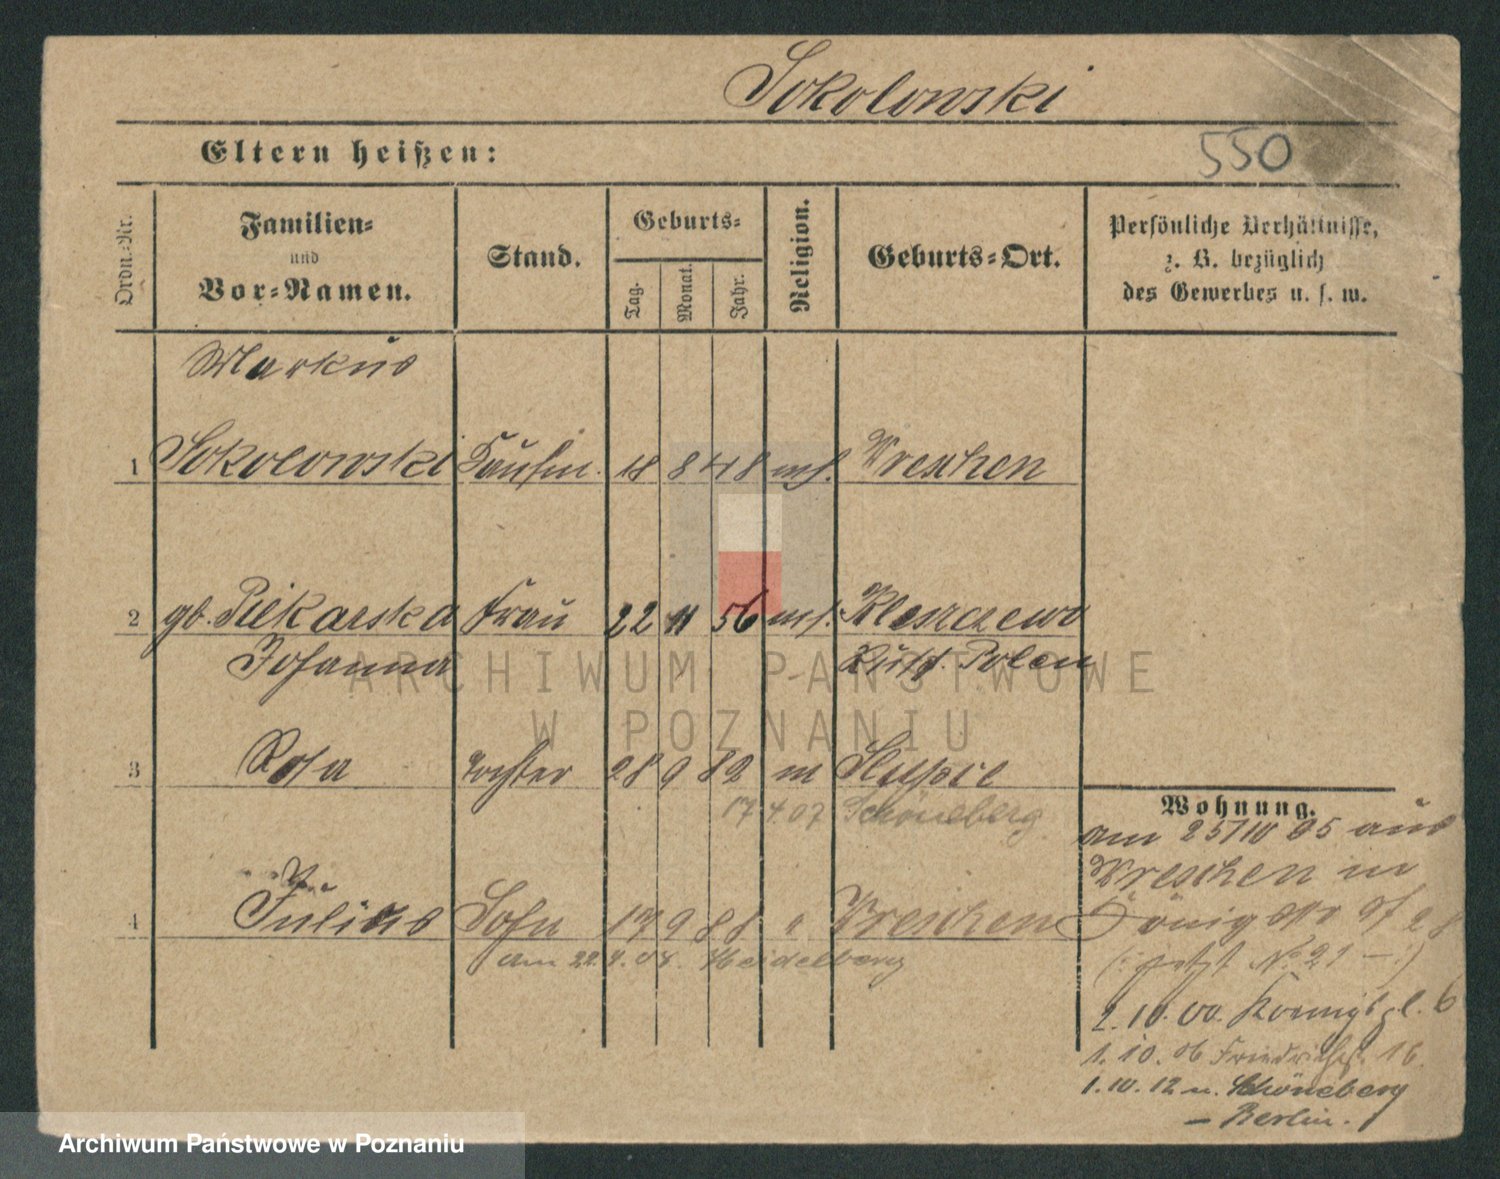 Sokolowski
Eltern heißen:
550
Ordn.-Nr.
Familien-
und
Vor-Namen.
Stand.
Geburts-
Tag.
Monat.
Jahr.
Religion.
Geburts-Ort.
Persönliche Verhältnisse,
z. B. bezüglich
des Gewerbes u. s. w.
Markus
1 Sokolowski Kaufm. 18 8 48 mos. Wreschen
2 gb. Piekarska Frau 22 11 56 mos. Kleszczewo
Johanna Russ. Polen
ARCHIWUM PAŃSTWOWE
W POZNANIU
3 Rosa Tochter 28 9 82 m Slupce
17 4 07 Schöneberg
4 Julius Sohn 17 9 88 " Wreschen
am 22.4.08. Heidelberg
Wohnung.
am 25/10 95 aus
Wreschen in
Königstr
(: jetzt No 21 — :)
2.10.00. Koenigspl. 6
1.10.06 Friedrichst. 16
1.10.12 n. Schöneberg
– Berlin.
Archiwum Państwowe w Poznaniu